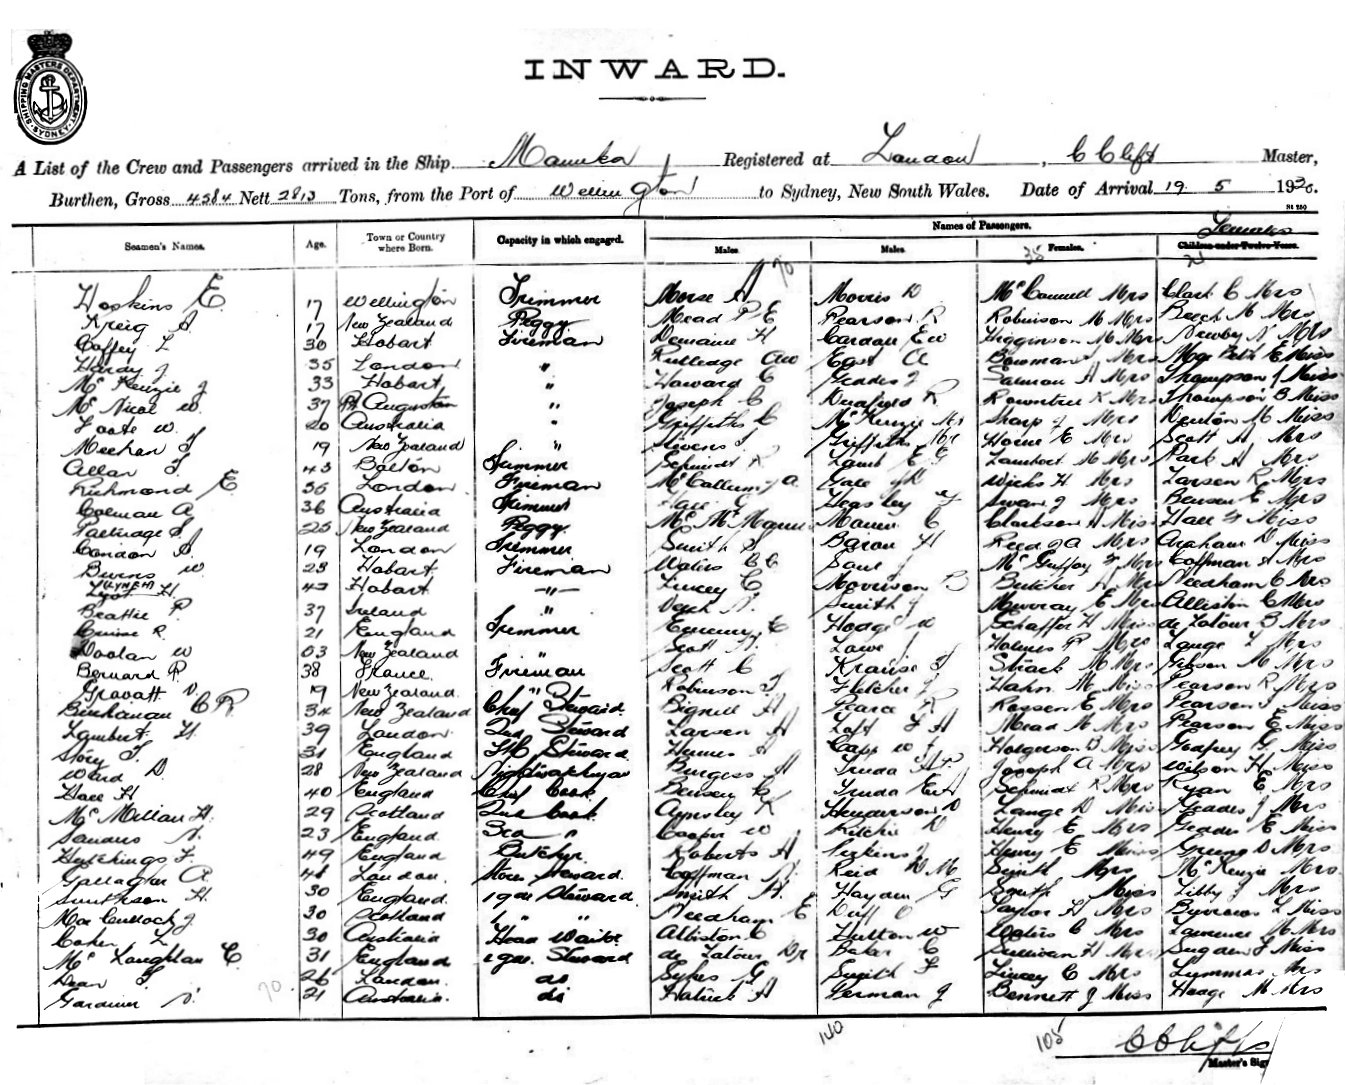 SHIPPING MASTERS DEPARTMENT
SYDNEY
INWARD.
A List of the Crew and Passengers arrived in the Ship Manuka Registered at London, C Clift Master,
Burthen, Gross 4584 Nett 2813 Tons, from the Port of Wellington to Sydney, New South Wales. Date of Arrival 19 5 1920.
Names of Passengers. Females
Seamen's Names. Age. Town or Country where Born. Capacity in which engaged. Males. Males. Females. Children under Twelve Years.
Hoskins E 17 Wellington Trimmer Morse A Morris D McConnell Mrs Clark C Mrs
Kreig A 17 New Zealand Peggy Mead P E Pearson R Robinson M Mrs Beech M Mrs
Caffey L 30 Hobart Fireman Domaine H Cardale E W Higginson M Mrs Newby N Mrs
Hardy J 35 London " Rutledge A W East A Bowman Mrs Miss
McKenzie J 33 Hobart " Howard C Geddes J Salmon A Mrs Thompson J Miss
McNicol W. 37 Pt Augusta " Joseph C R Rowntree K Mrs Thompson B Miss
Foote W. 20 Australia " Griffiths C McKenzie Mr Sharp J Mrs Newton M Miss
Meehan T 19 New Zealand " Stevens T Griffiths Mr Horne E Mrs Scott A Mrs
Allan T 43 Bolton Trimmer Schmidt R Lamb E G Lambert M Mrs Park A Mrs
Richmond E 36 London Fireman McCallum A Wicks H Mrs Larsen R Mrs
Coleman A 36 Australia Trimmer Heasley F Swan J Mrs Bensen E Mrs
Partridge S 25 New Zealand Peggy Clarkson A Miss Miss
Condon D. 19 London Trimmer Smith S Baron H Reed G A Mrs Graham D Miss
Burns W 23 Hobart Fireman Waters C C Saul J McGuffoy F Mrs Coffman A Mrs
H 42 Hobart -"- Lincey C Morrison B Butcher A Mrs Needham C Mrs
Beattie P 37 Ireland " Smith J Murray E Mrs Alliston C Mrs
Cruise R. 21 England Trimmer Hodge W Schaffer H Miss de Latour B Mrs
Doolan W 63 New Zealand " Scott Lowe J Holmes P Mrs Lange L Mrs
Bernard P 38 France. Fireman Scott C Krause S Strack M Mrs Gibson M Mrs
Gravatt V. 19 New Zealand. " Robinson T Fletcher J Hahn M Miss Pearson R Mrs
Buchanan C R. 34 New Zealand Chief Steward. Bignell H Pearce R Kaysen E Mrs Pearson J Miss
Lambert H. 39 London 2nd Steward Larsen A Loft F A Mead M Mrs Pearson E Miss
Story T. 31 England Steward Hennes A Capp W J Holgerson B Miss Godfrey G Miss
Ward D. 28 New Zealand Nightwatchman Burgess A Joseph A Mrs Wilson H Miss
Hall H 40 England Chief Cook Bensen C E A Schmidt R Mrs Ryan E Mrs
McMillan H. 29 Scotland 2nd Cook Apnsley K Henderson D Lange D Miss Geddes J Mrs
Sanders 23 England. 3rd " Cooper W Ritchie D Henry E Mrs Geddes E Miss
Hutchings F. 49 England Butcher. Roberts A Perkins J Henry E Miss Greene D Mrs
Gallagher A 48 London. Stores Steward. Coffman Reid W M Smith Mrs McKenzie Mrs
H. 30 England. 1 gen Steward. Smith H. Hayden G Smith Miss Libby J Mrs
MacCullock J 30 Scotland " " Needham E Duff O Taylor H Mrs Burrows L Miss
Coker L 30 Australia Head Waiter Alliston C Hutton W Waters C Mrs Lawrence M Mrs
McLaughlan C. 31 England 1 gen. Steward de Latour Dr Baker C Sullivan H Mrs Sugden F Miss
Dean T. 26 London. do Sykes G Smith F Lincey C Mrs Lummas Mrs
Gardiner 21 Australia. do Hatrick A German J Bennett J Miss Hoage M Mrs
70
140
105
C Clift
Master's Sig